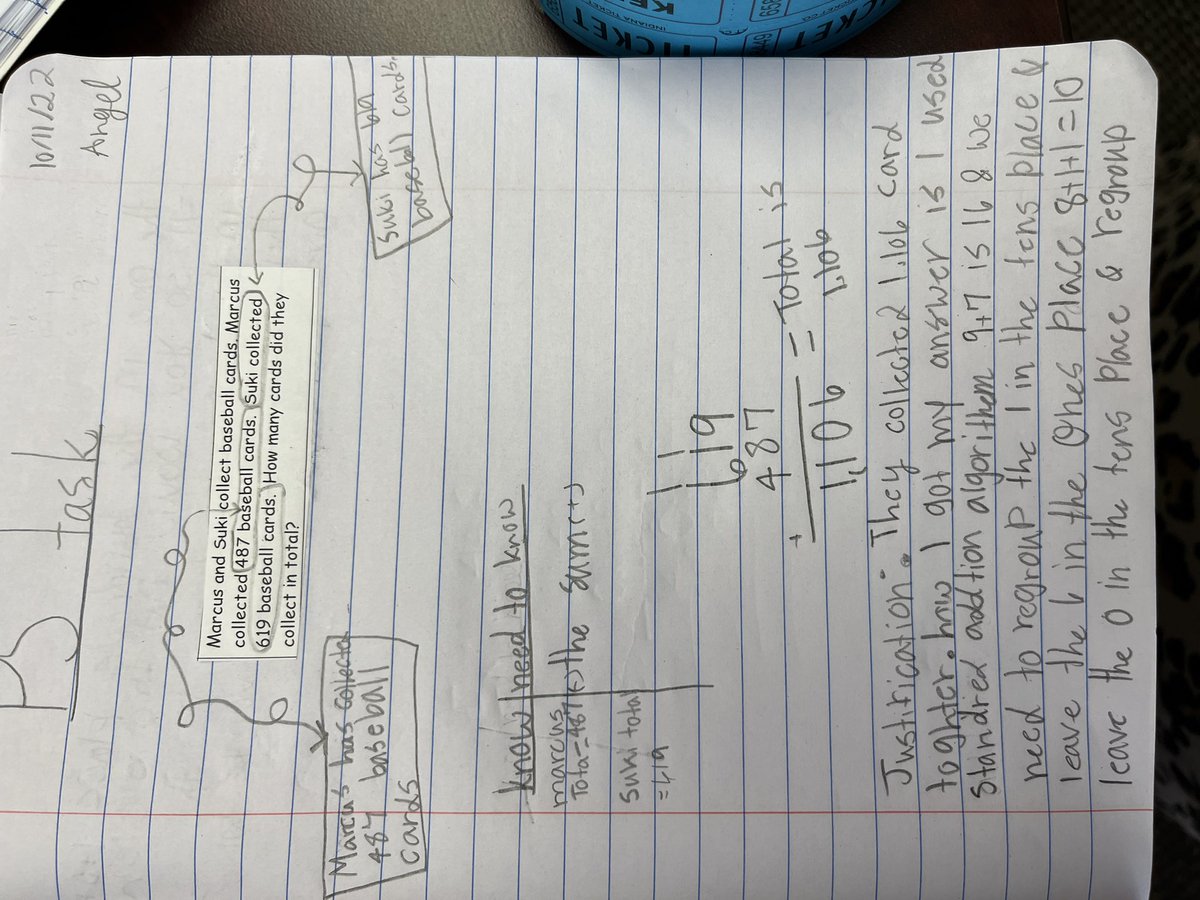 10/11/22
Angel
task
Marcus and Suki collect baseball cards. Marcus
collected 487 baseball cards. Suki collected
619 baseball cards. How many cards did they
collect in total?
Marcus has collected
487 baseball
cards
Suki has 619
baseball cards.
know need to know
marcus
Total=487 (+) the sum (+)
Suki total
=619
11
619
+ 487
1,106 = Total is
1,106
Justification: They collected 1,106 card
toghter. how I got my answer is I used
Standred addtion algorithem 9+7 is 16 & we
need to regroup the 1 in the tens place &
leave the 6 in the Ones Place 8+1+1=10
leave the 0 in the tens Place & regroup
TICKET
INDIANA TICKET
TICKET